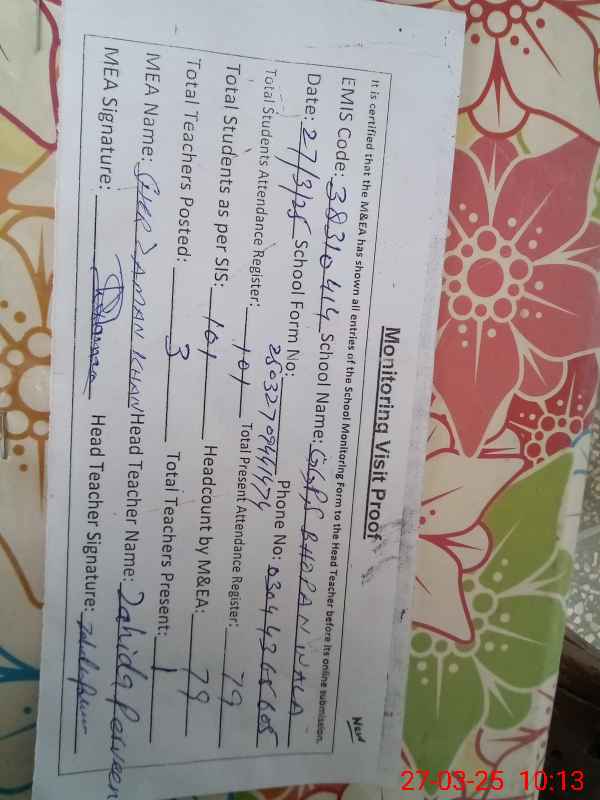 Monitoring Visit Proof
New
It is certified that the M&EA has shown all entries of the School Monitoring Form to the Head Teacher before its online submission.
EMIS Code: 38310414 School Name: GGPS BHOPAN WALA
Date: 27/3/25 School Form No: Phone No: 03044365605
Total Students Attendance Register: 101 Total Present Attendance Register: 79
Total Students as per SIS: 101 Headcount by M&EA: 79
Total Teachers Posted: 3 Total Teachers Present: 1
MEA Name: SHER ZAMAN KHAN Head Teacher Name: Zahida Perveen
MEA Signature: Head Teacher Signature:
27-03-25 10:13